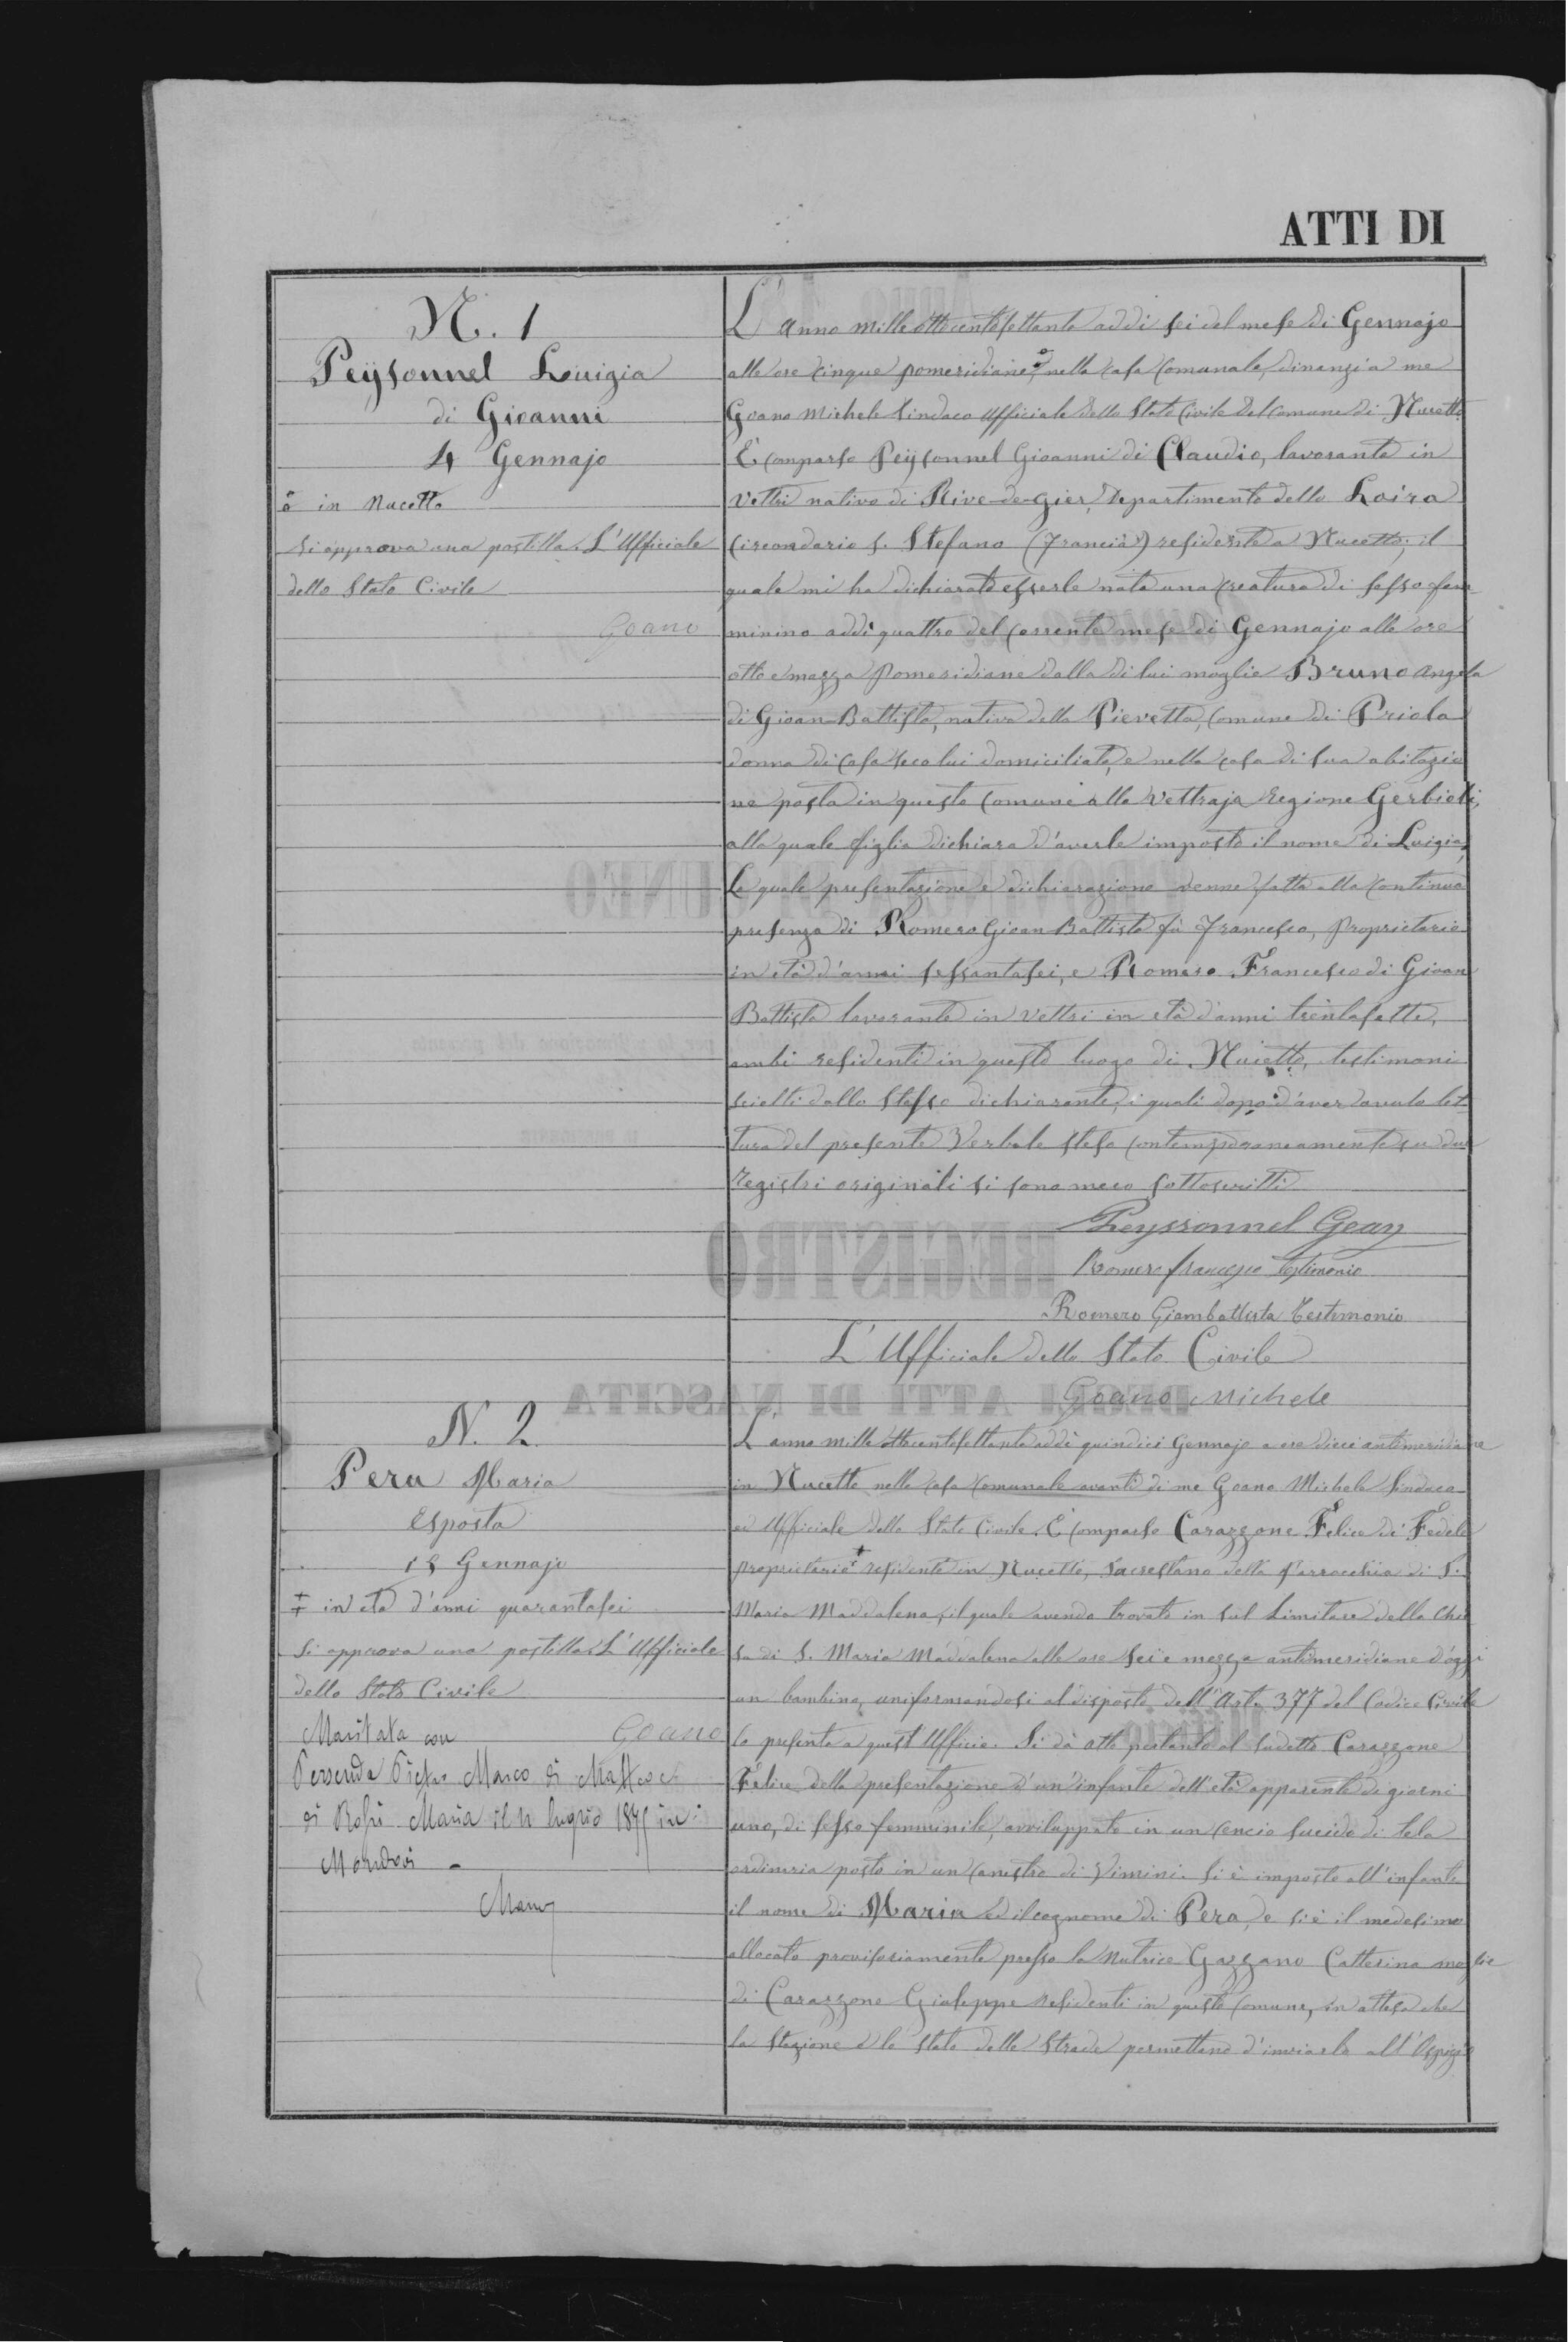 ATTI DI
N. 1
Peÿsonnel Luigia
di Gioanni
4 Gennajo
o in Nucetto
Si approva una postilla. L'Ufficiale
dello Stato Civile
Goano
L'anno mille ottocentosettanta addi sei del mese di Gennajo
alle ore cinque pomeridiane, nella casa Comunale, dinanzi a me
Goano Michele Sindaco Ufficiale dello Stato Civile del Comune di Nucetto
È comparso Peÿsonnel Gioanni di Claudio, lavorante in
Vettri nativo di Rive-de-Gier, Dipartimento della Loira
Circondario S. Stefano (Francia) residente a Nucetto; il
quale mi ha dichiarato esserle nata una creatura di sesso fem
minino addi quattro del corrente mese di Gennajo alle ore
otto e mezza pomeridiane dalla di lui moglie Bruno Angela
di Gioan Battista, nativa della Pievetta, Comune di Priola
donna di casa seco lui domiciliata, e nella casa di sua abitazio
ne posta in questo comune alla Vettraja Regione Gerbioli,
alla quale figlia dichiara d'averle imposto il nome di Luigia,
La quale presentazione e dichiarazione venne fatta alla continua
presenza di Romero Gioan Battista fù Francesco, Proprietario
in età d'anni sessantasei, e Romero Francesco di Gioan
Battista lavorante in Vettri in età d'anni trentasette,
ambi residenti in questo luogo di Nucetto, testimoni
scielti dallo stesso dichiarante, i quali dopo d'aver avuto let
tura del presente Verbale steso contemporaneamente su due
Registri originali si sono meco sottoscritti
Peyssonnel Gean
Romero francesco testimonio
Romero Giambattista Testimonio
L'Ufficiale dello Stato Civile
Goano Michele
N. 2
Pera Maria
Esposta
15 Gennajo
‡ in età d'anni quarantasei
Si approva una postilla. L'Ufficiale
dello Stato Civile
Goano
Maritata con
Pietro Marco di Matteo e
di Rossi Maria il 11 luglio in
Mondovi
L'anno mille ottocentosettanta addi quindici Gennajo a ore dieci antimeridiane
in Nucetto nella casa Comunale avanti di me Goano Michele Sindaco
ed Ufficiale dello Stato Civile. È comparso Carazzone Felice di Fedele
proprietario ‡ residente in Nucetto, Sacrestano della Parrocchia di S.
Maria Maddalena, il quale avendo trovato in sul Limitare della Chie
sa di S. Maria Maddalena alle ore sei e mezza antimeridiane d'oggi
un bambino, uniformandosi al disposto dell'Art. 377 del Codice Civile
lo presenta a quest'Ufficio. Si dà atto pertanto al sudetto Carazzone
Felice della presentazione d'un'infante dell'età apparente di giorni
uno, di sesso femminile, avviluppato in un cencio sucido di tela
ordinaria posto in un canestro di Vimini. Si è imposto all'infante
il nome di Maria ed il cognome di Pera, e si è il medesimo
allocato provisoriamente presso la Nutrice Gazzano Catterina moglie
di Carazzone Giuseppe residenti in questo Comune, in attesa che
la Stagione e lo stato delle Strade permettano d'inviarlo all'Ospizio